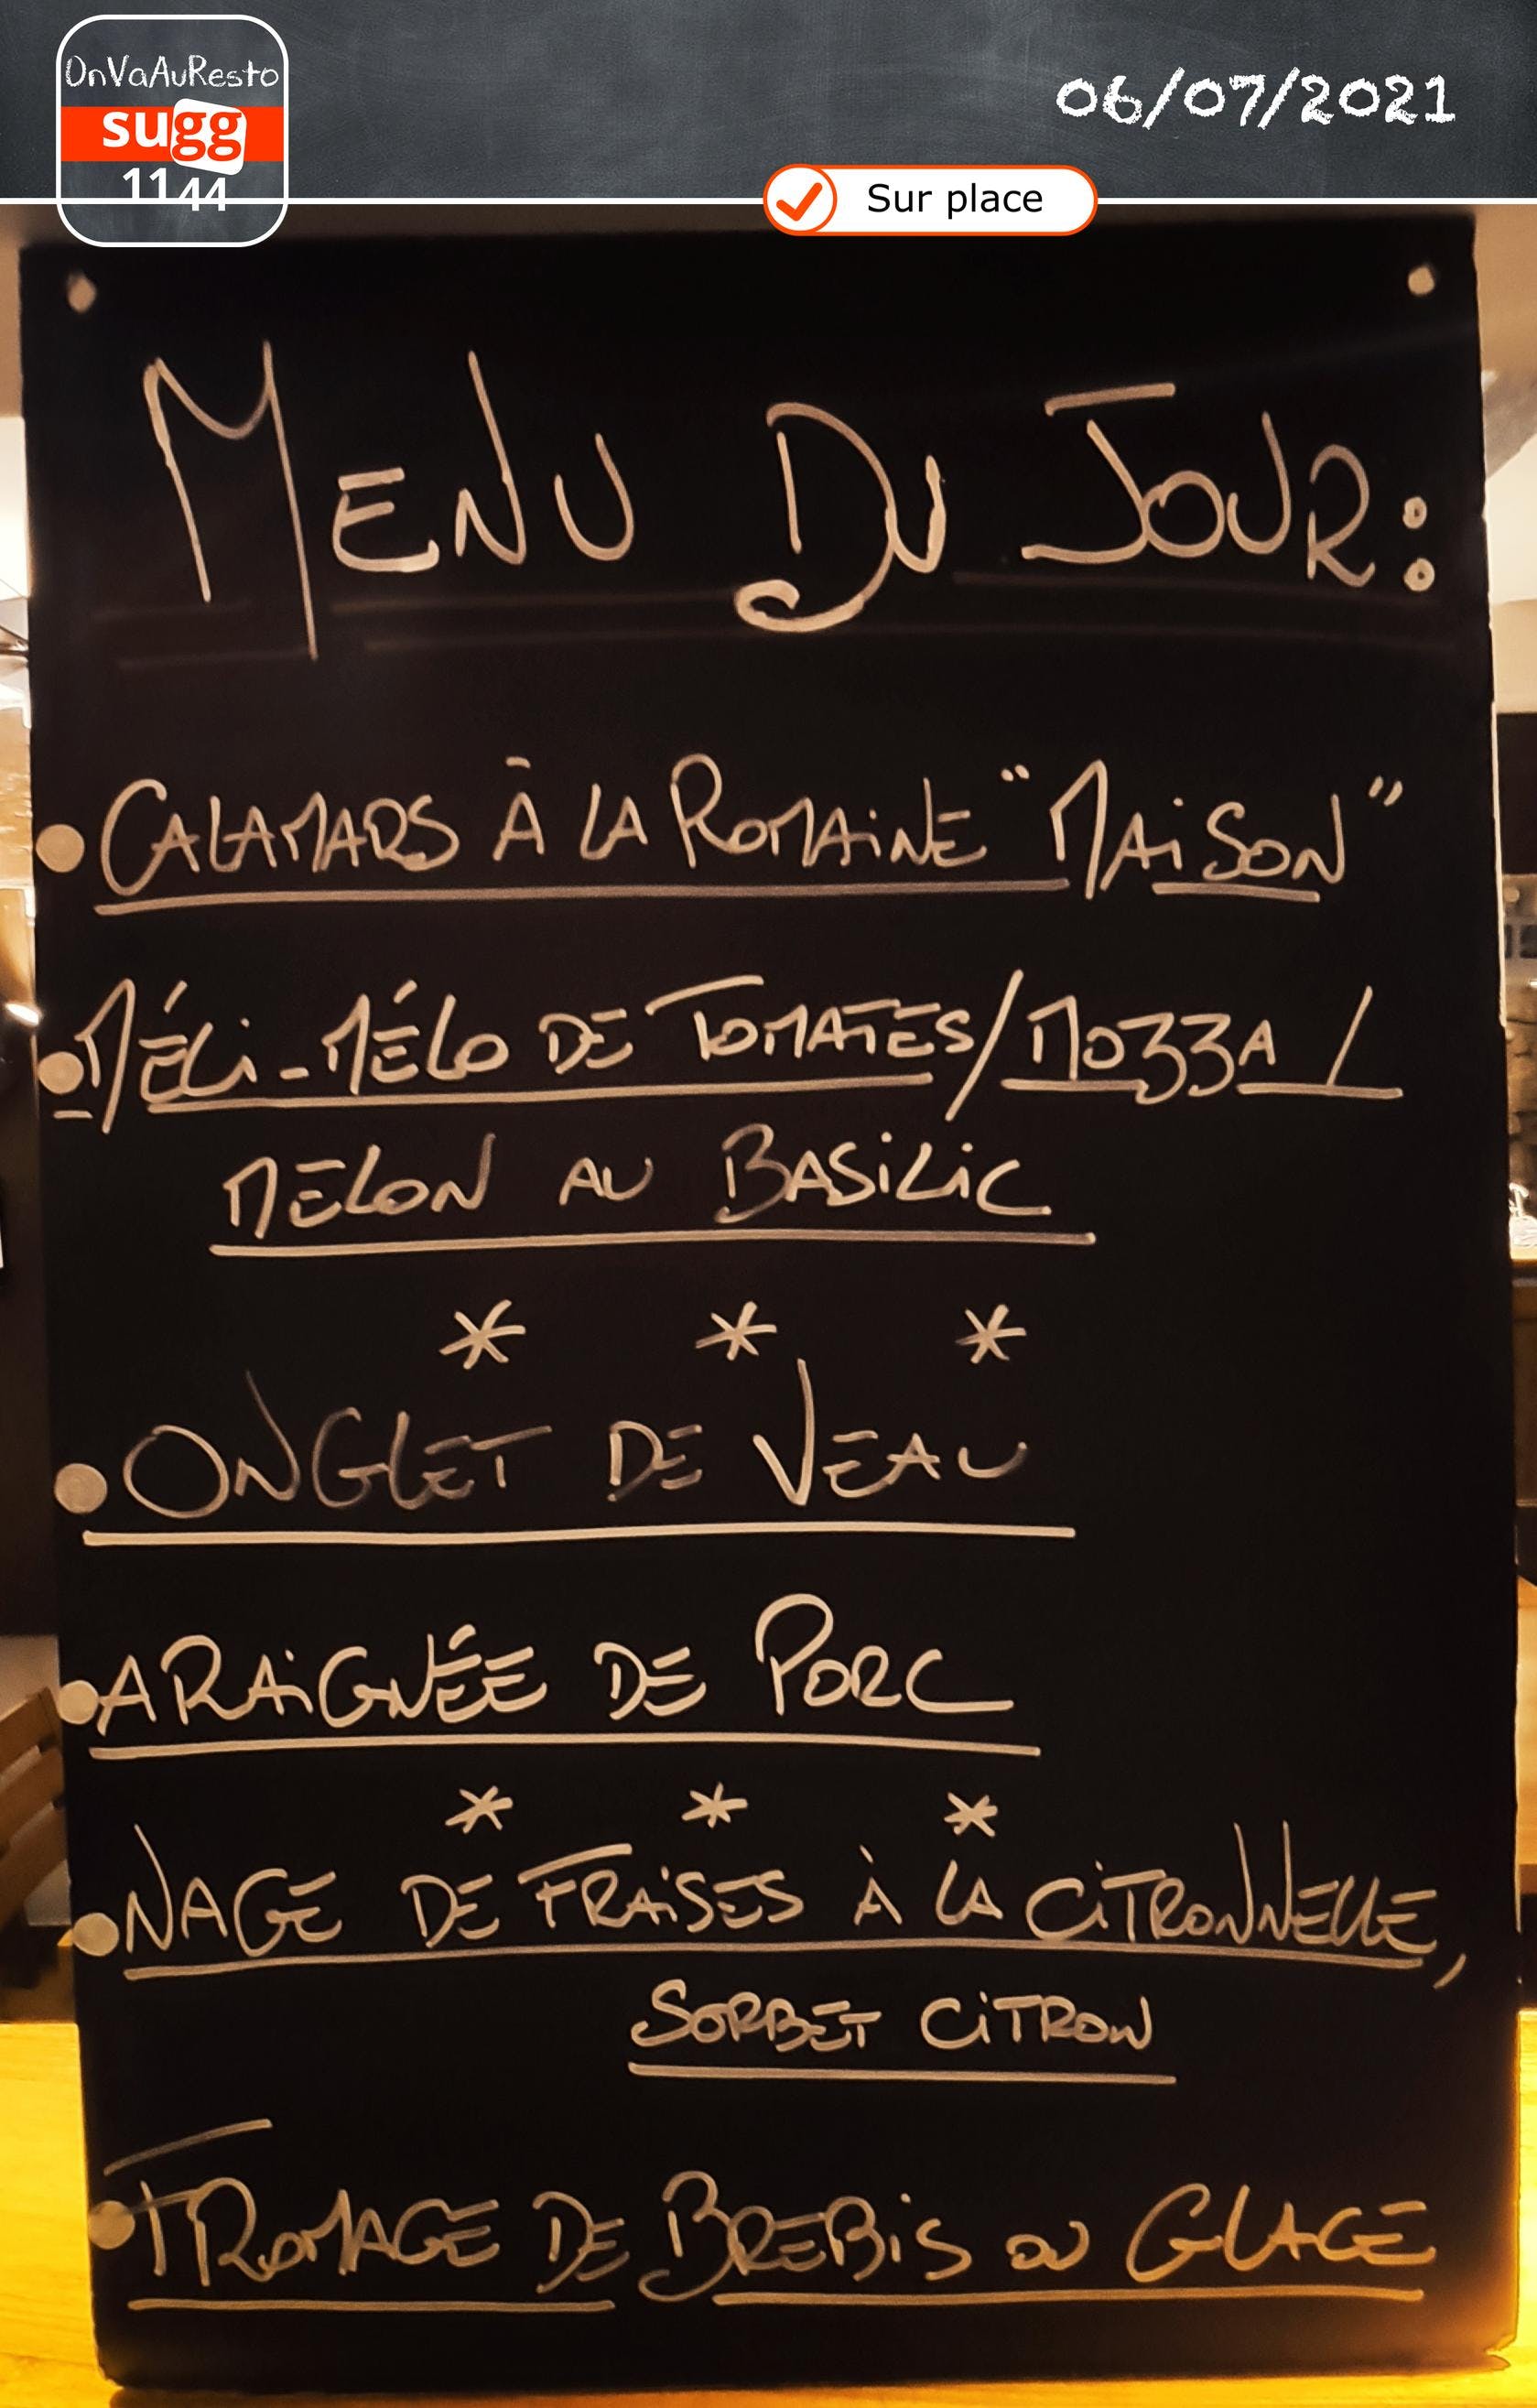 OnVaAuResto
sugg
1144
06/07/2021
Sur place
MENU DU JOUR:
• CALAMARS À LA ROMAINE "MAISON"
• MÉLI-MÉLO DE TOMATES/MOZZA/
MELON AU BASILIC
* * *
• ONGLET DE VEAU
• ARAIGNÉE DE PORC
* * *
• NAGE DE FRAISES À LA CITRONNELLE,
SORBET CITRON
• FROMAGE DE BREBIS OU GLACE